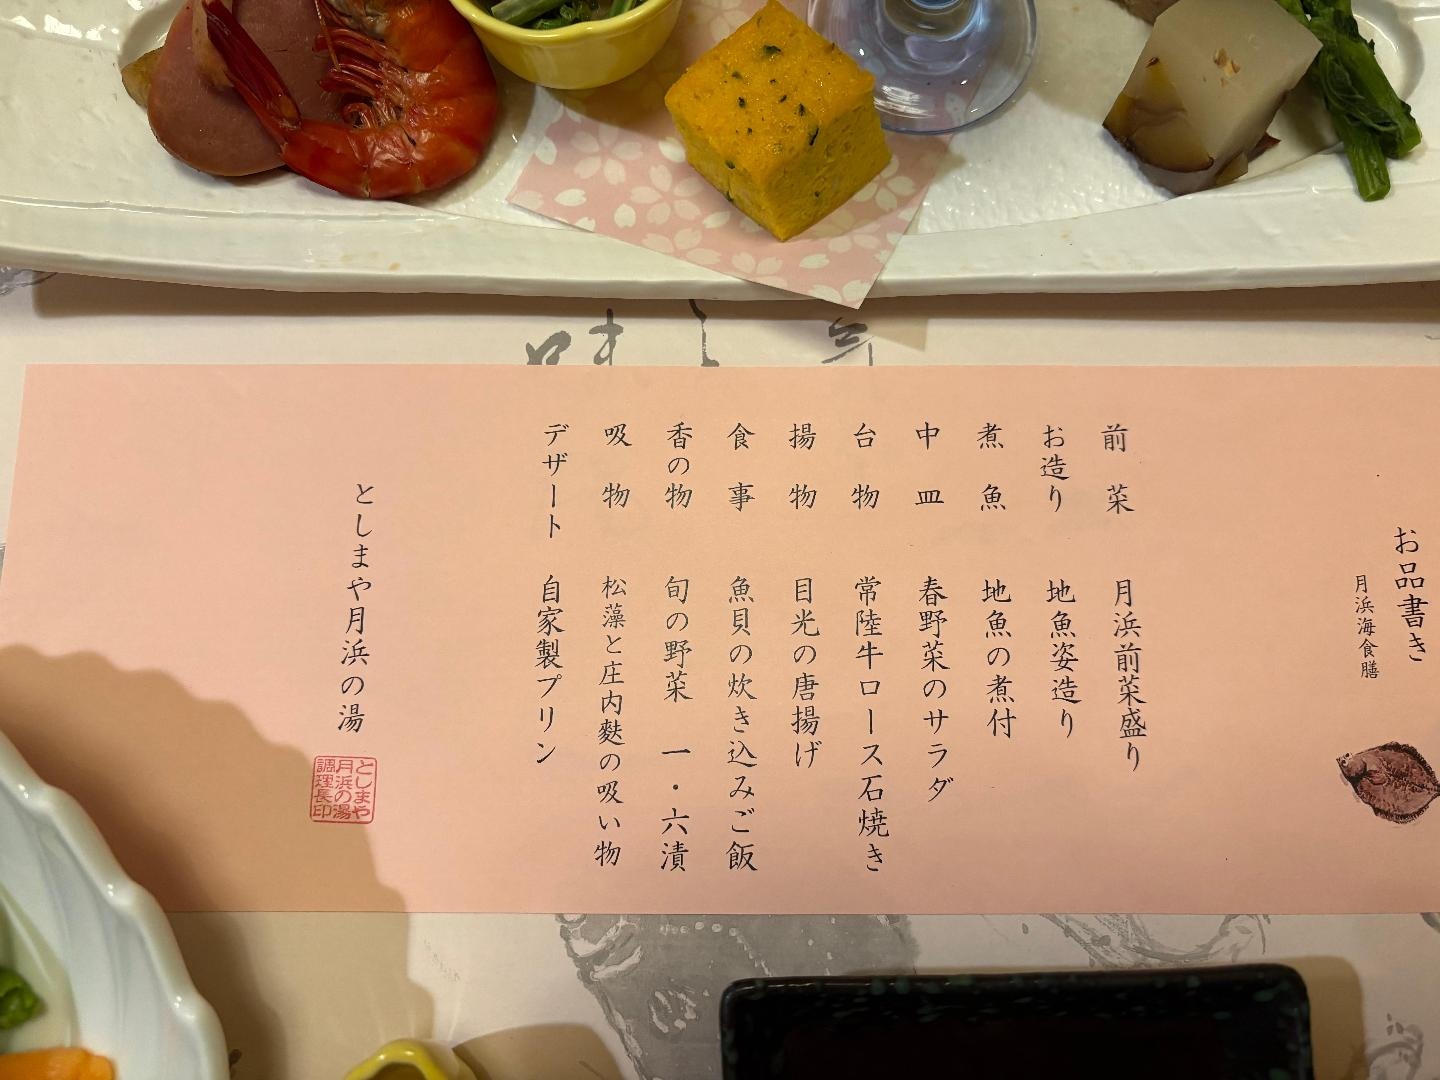 お品書き
月浜海食膳
前菜 月浜前菜盛り
お造り 地魚姿造り
煮魚 地魚の煮付
中皿 春野菜のサラダ
台物 常陸牛ロース石焼き
揚物 目光の唐揚げ
食事 魚貝の炊き込みご飯
香の物 旬の野菜 一・六漬
吸物 松藻と庄内麩の吸い物
デザート 自家製プリン
としまや月浜の湯
としまや
月浜の湯
調理長印
味